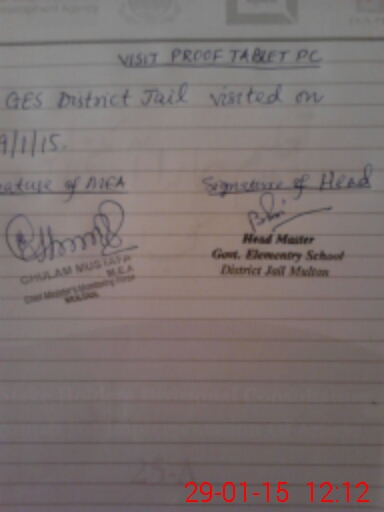 VISIT PROOF TABLET PC
GES District Jail visited on
9/1/15.
nature of MEA
Signature of Head
GHULAM MUSTAFA
M.E.A
Chief Minister's Monitoring Force
MULTAN
Head Master
Govt. Elementry School
District Jail Multan
29-01-15 12:12